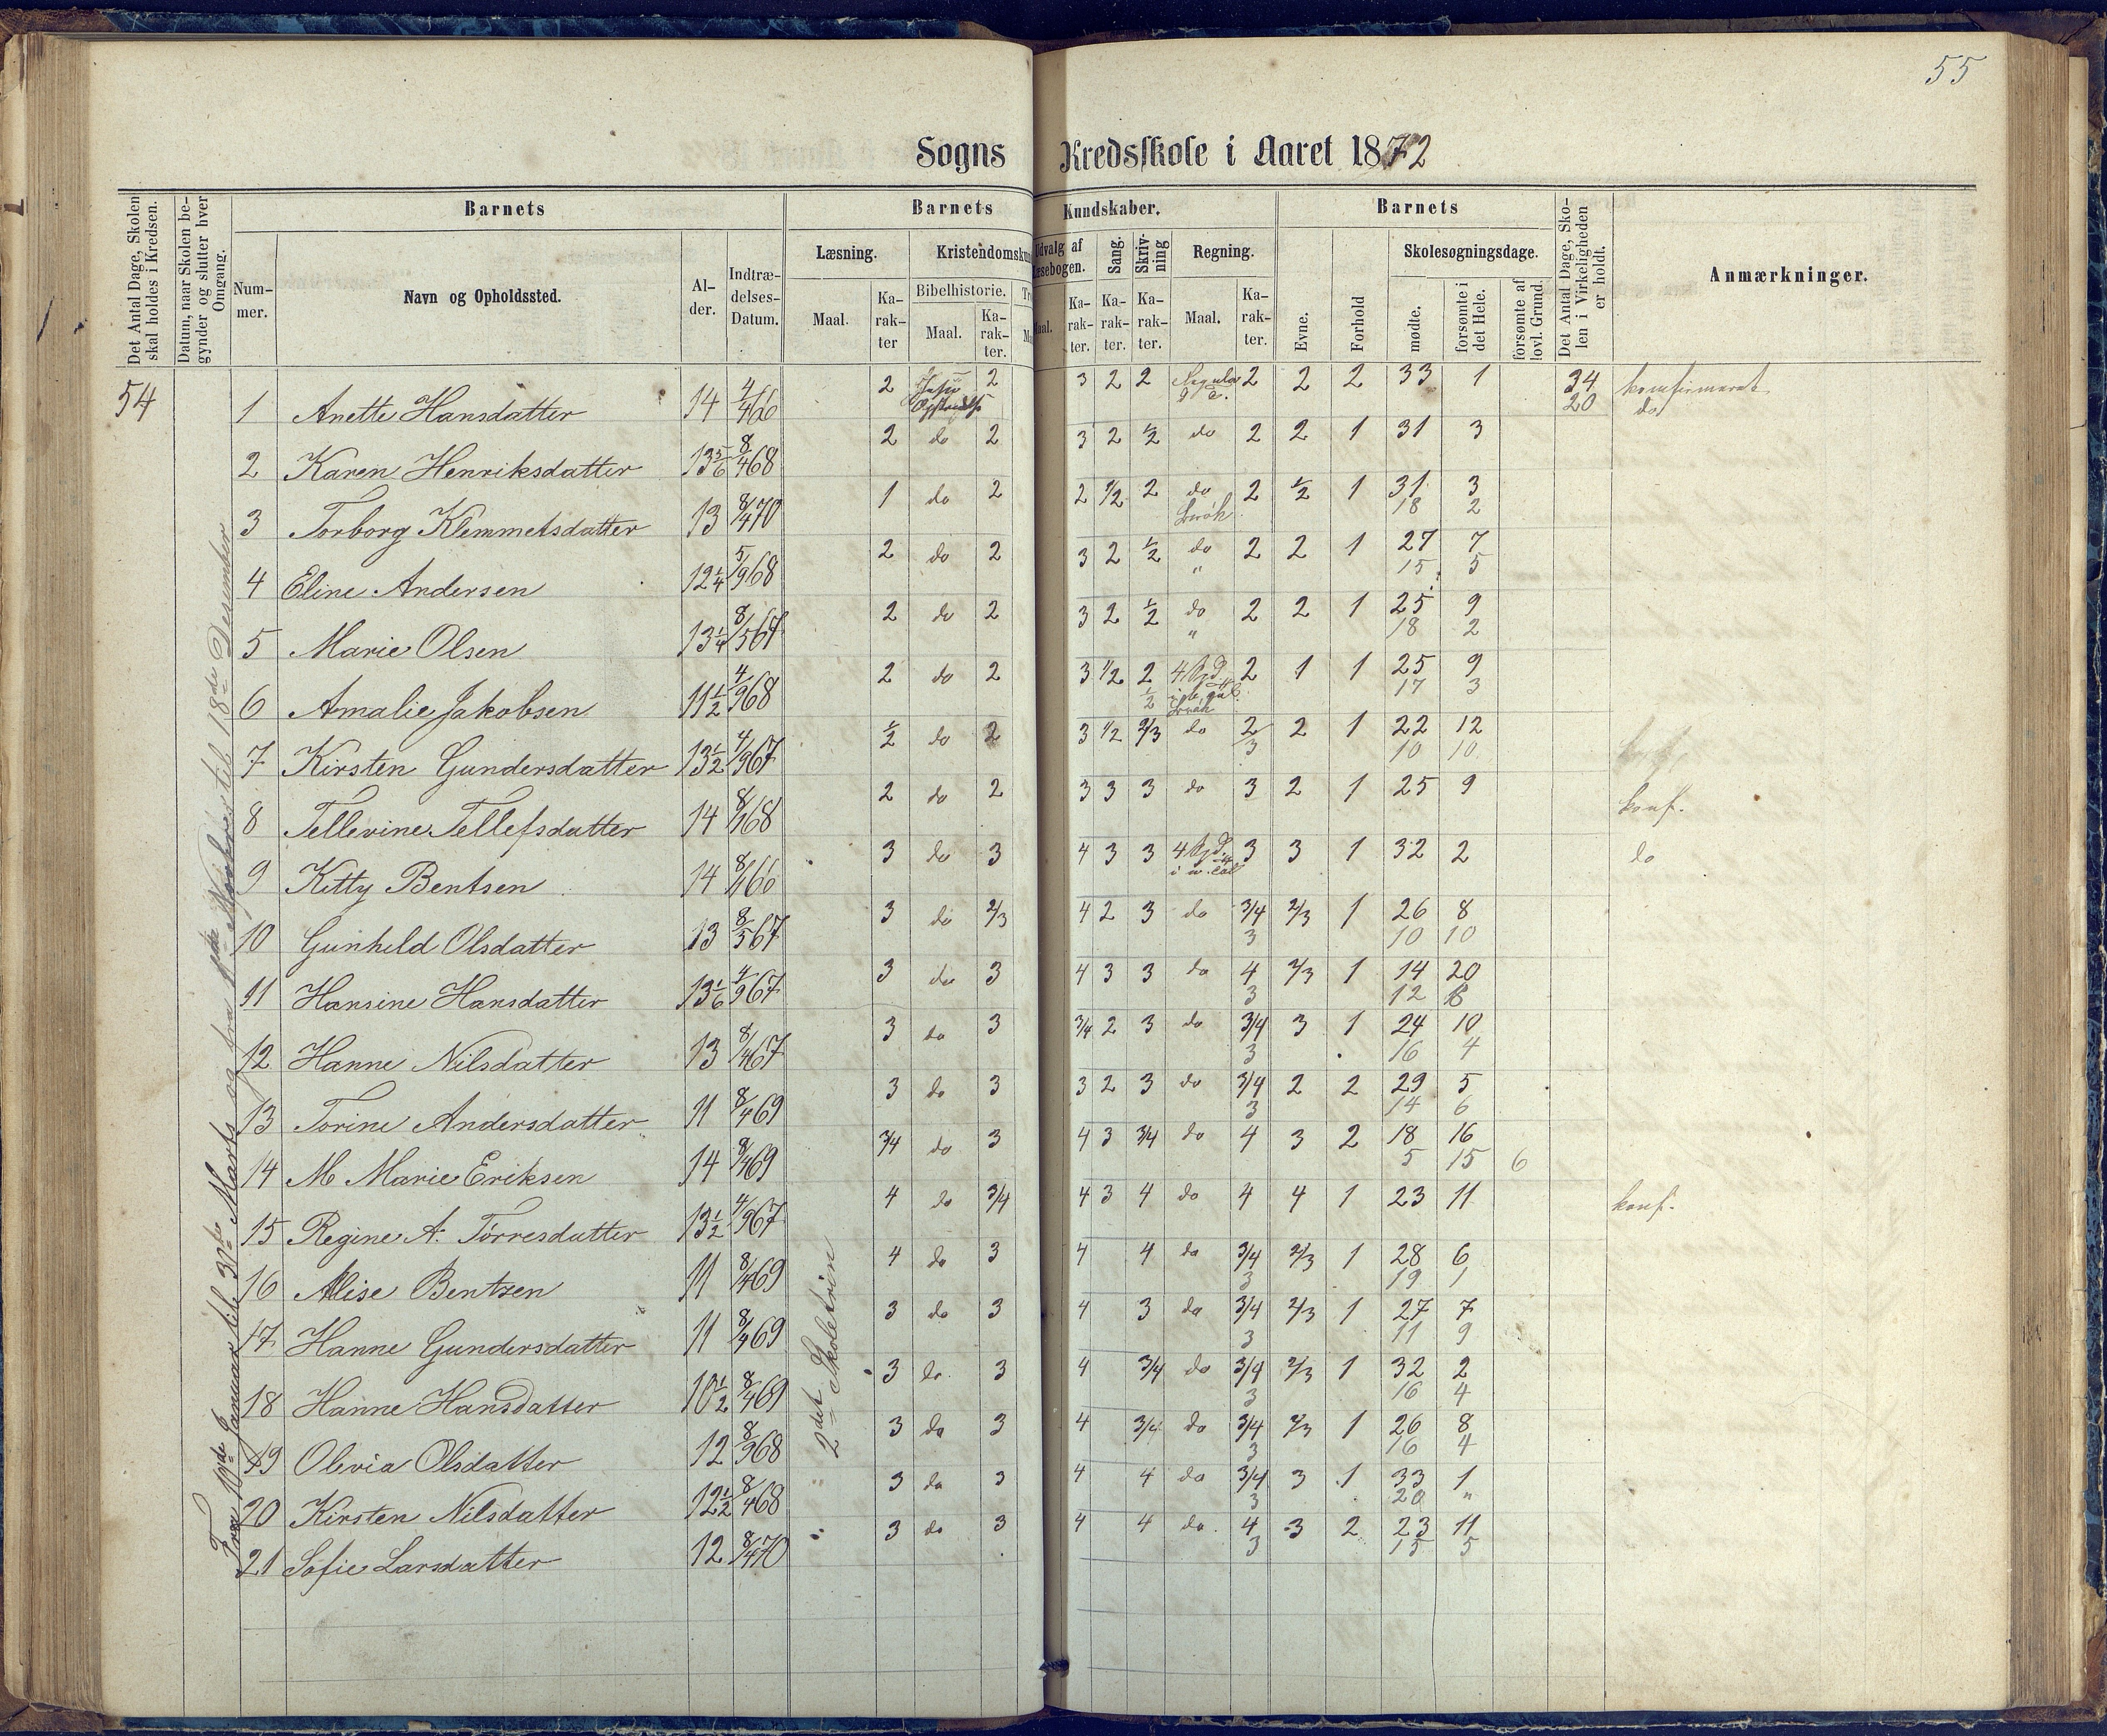 55
Sogns Kredsskole i Aaret 1872
Det Antal Dage, Skolen skal holdes i Kredsen.
Datum, naar Skolen begynder og slutter hver Omgang.
Barnets
Nummer.
Navn og Opholdssted.
Alder.
Indtrædelses-Datum.
Barnets Kundskaber.
Læsning.
Maal.
Karakter
Kristendomskun
Bibelhistorie.
Maal.
Karakter.
Udvalg af Læsebogen.
Maal.
Karakter.
Sang.
Karakter.
Skrivning
Karakter.
Regning.
Maal.
Karakter.
Barnets
Evne.
Forhold
Skolesøgningsdage.
mødte.
forsømte i det Hele.
forsømte af lovl. Grund.
Det Antal Dage, Skolen i Virkeligheden er holdt.
Anmærkninger.
54
Fra 10de Januar til 30te Marts og fra til 18de Desember
2det Skoletrin
1 Anette Hansdatter 14 4/4 66 2 Jesu 2 3 2 2 2 2 2 33 1 34 konfirmeret
20 do
2 Karen Henriksdatter 13 5/6 8/4 68 2 do 2 3 2 1/2 do 2 2 1 31 3
3 Torborg Klemmetsdatter 13 8/4 70 1 do 2 2 1/2 2 do 2 1/2 1 31 3
Brøk 18 2
4 Eline Andersen 12 1/4 5/9 68 2 do 2 3 2 1/2 do 2 2 1 27 7
" 15 5
5 Marie Olsen 13 1/4 8/5 67 2 do 2 3 2 1/2 do 2 2 1 25 9
" 18 2
6 Amalie Jakobsen 11 1/2 4/9 68 2 do 2 3 1/2 2 2 1 1 25 9
1/2 Brøk 17 3
7 Kirsten Gundersdatter 13 1/2 4/9 67 1/2 do 2 3 1/2 2/3 do 2/3 2 1 22 12
10 10
8 Tellevine Tellefsdatter 14 8/1 68 2 do 2 3 3 3 do 3 2 1 25 9 konf.
9 Kitty Bentsen 14 8/1 66 3 do 3 4 3 3 3 3 1 32 2 do
10 Gunhild Olsdatter 13 8/5 67 3 do 2/3 4 2 3 do 3/4 2/3 1 26 8
3 10 10
11 Hansine Hansdatter 13 1/6 4/9 67 3 do 3 4 3 3 do 4 2/3 1 14 20
3 12 8
12 Hanne Nilsdatter 13 8/4 67 3 do 3 3/4 2 3 do 3/4 3 1 24 10
3 16 4
13 Torine Andersdatter 11 8/4 69 3 do 3 3 2 3 do 3/4 2 2 29 5
3 14 6
14 M Marie Eriksen 14 8/4 69 3/4 do 3 4 3 3/4 do 4 3 2 18 16
5 15 6
15 Regine A. Tørresdatter 13 1/2 4/9 67 4 do 3/4 4 3 4 do 4 4 1 23 11 konf.
16 Alise Bentzen 11 8/4 69 4 do 3 4 4 do 3/4 2/3 1 28 6
3 19 1
17 Hanne Gundersdatter 11 8/4 69 3 do 3 4 3 do 3/4 2/3 1 27 7
3 11 9
18 Hanne Hansdatter 10 1/2 8/4 69 3 do 3 4 3/4 do 3/4 2/3 1 32 2
3 16 4
19 Olevia Olsdatter 12 8/9 68 3 do 3 4 3/4 do 3/4 2/3 1 26 8
3 16 4
20 Kirsten Nilsdatter 12 1/2 8/4 68 3 do 3 4 4 do 3/4 3 1 33 1
3 20 "
21 Sofie Larsdatter 12 8/4 70 3 do 3 4 4 do 4 3 2 23 11
3 15 5